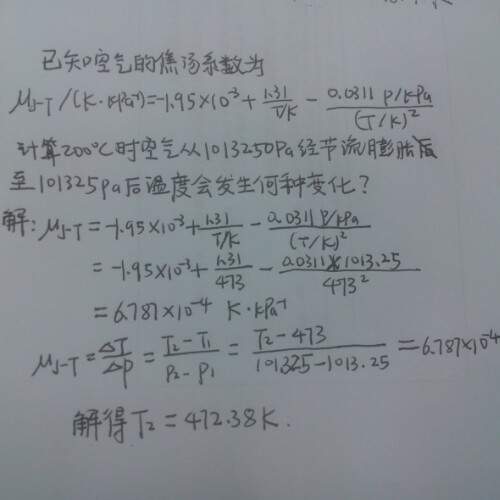 已知空气的焦汤系数为
μJ-T/(K·kPa⁻¹)=-1.95×10⁻³+1.31/(T/K)-0.0311 P/kPa/(T/K)²
计算200℃时空气从1013250Pa经节流膨胀后
至101325Pa后温度会发生何种变化?
解:μJ-T=-1.95×10⁻³+1.31/(T/K)-0.0311 P/kPa/(T/K)²
=-1.95×10⁻³+1.31/473-0.0311×1013.25/473²
=6.787×10⁻⁴ K·kPa⁻¹
μJ-T=ΔT/Δp=T₂-T₁/p₂-p₁=T₂-473/101325-1013.25=6.787×10⁻⁴
解得T₂=472.38K.